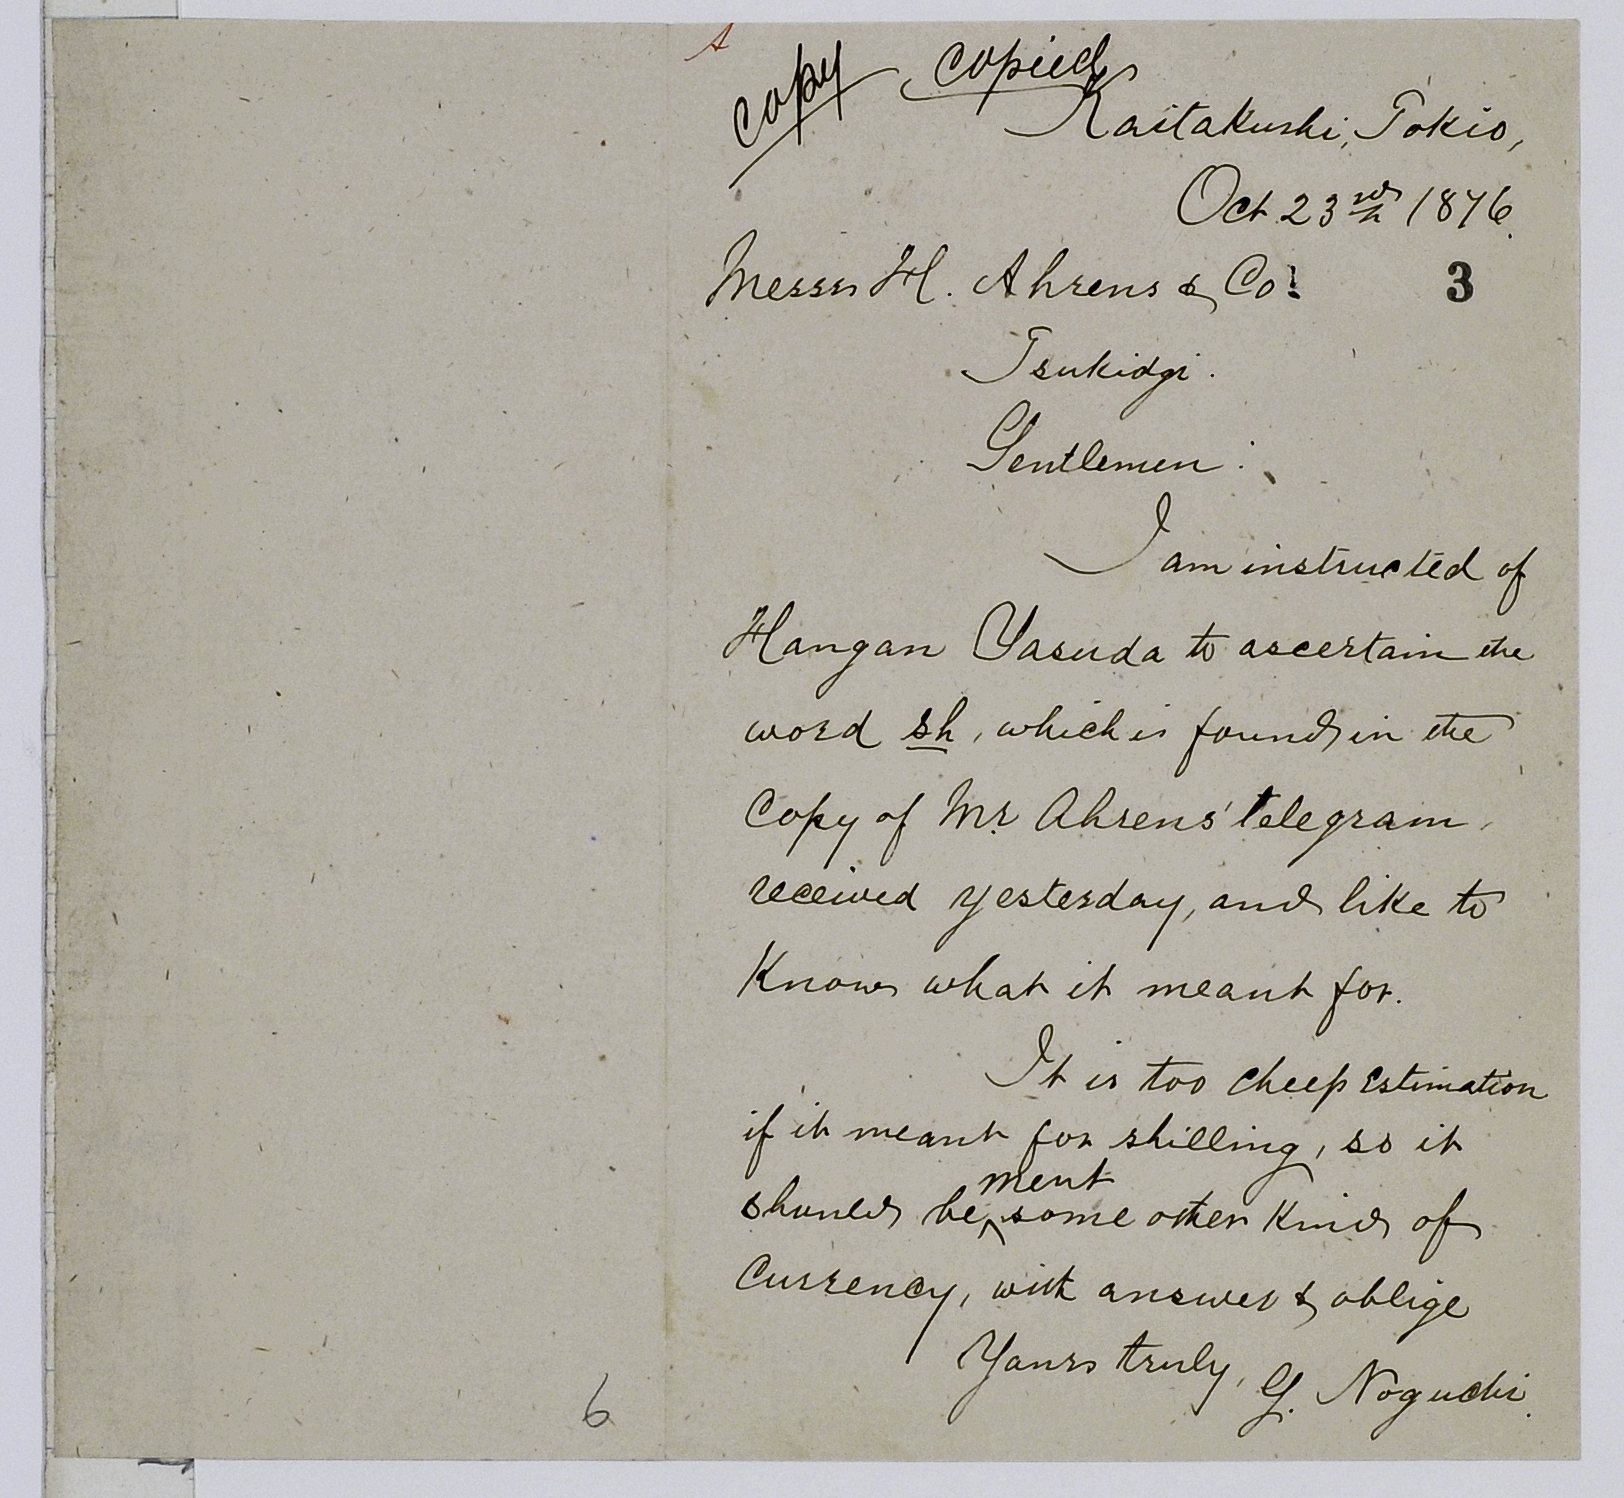 copy copied
Kaitakushi, Tokio,
Oct 23rd 1876.
Messrs H. Ahrens & Co.
3
Tsukidgi.
Gentlemen:
I am instructed of
Hangan Yasuda to ascertain the
word sh, which is found in the
Copy of Mr Ahrens' telegram
received yesterday, and like to
Know what it meant for.
It is too cheep estimation
if it meant for shilling, so it
ment
should be some other Kind of
Currency, with answer & oblige
Yours truly, G. Noguchi.
6